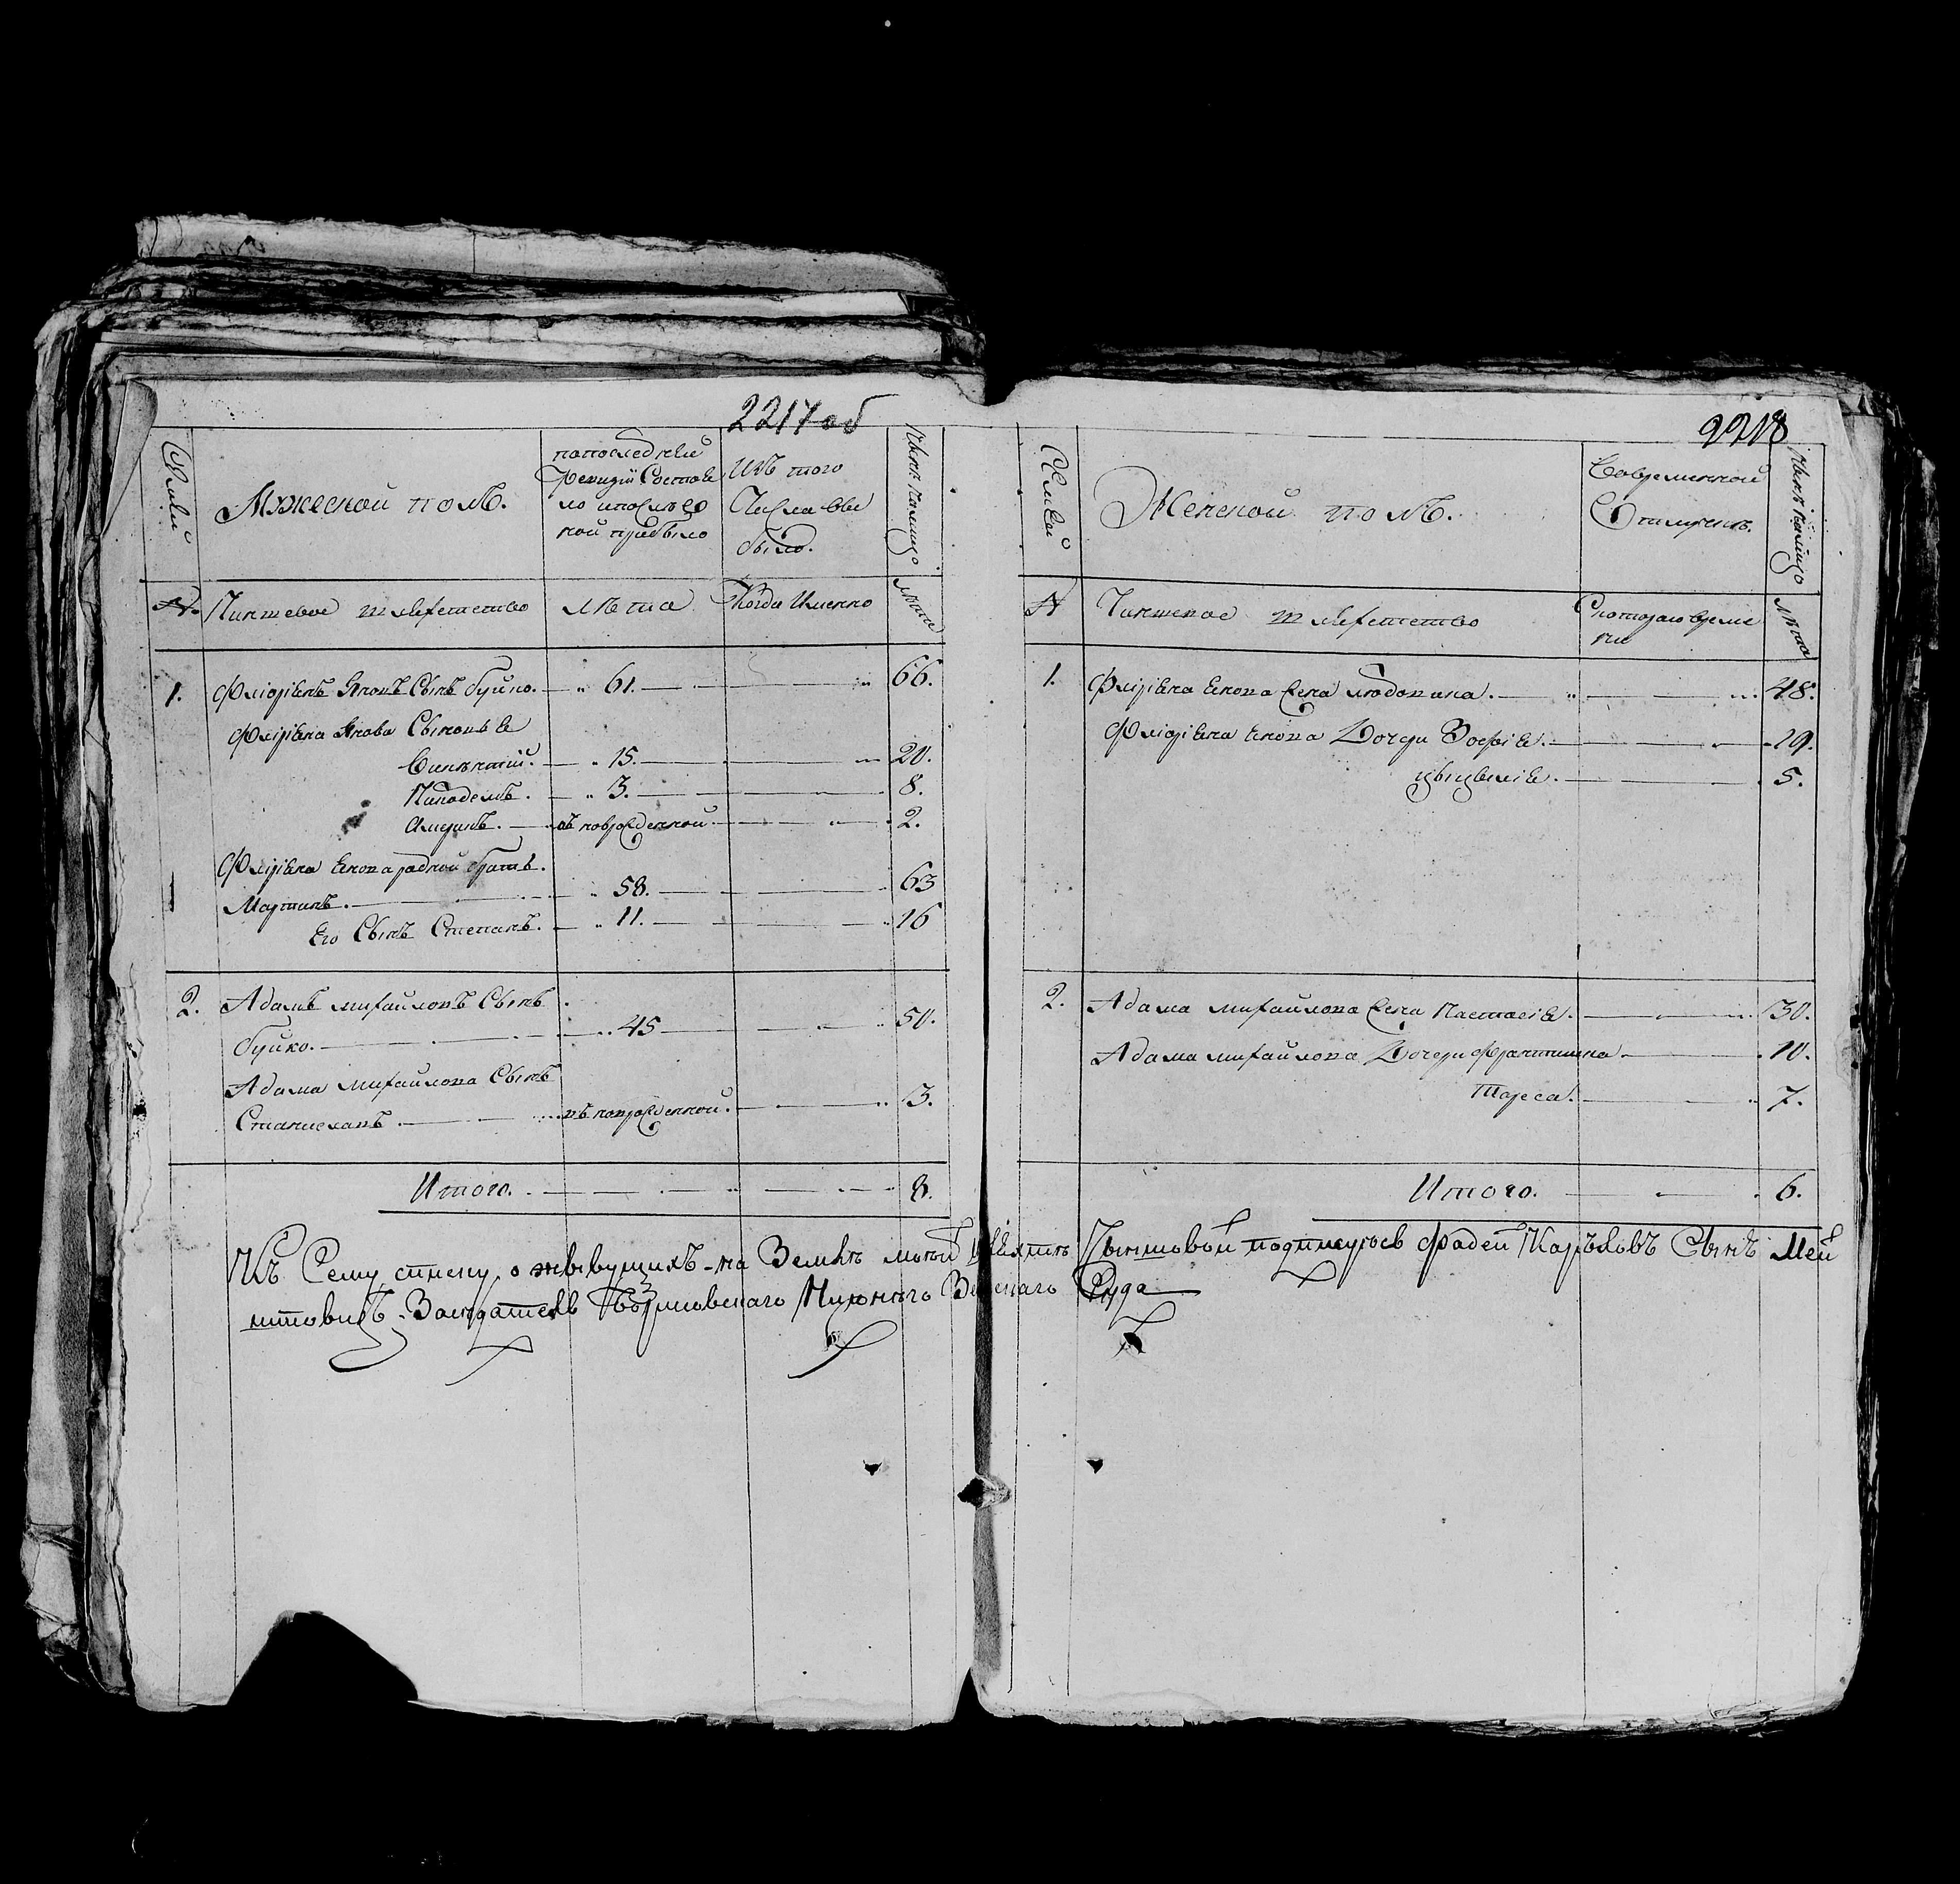 2217 об
Семьи
Мужеской полъ.
попоследней
Ревизіи Состояло
и после
оной прибыло
Изъ того
Числа вы
было.
Ныне налицо
№.
Чиншевое шляхетство
лѣта
Когда Именно
лѣта
1. Флоріянъ Яковъ Сынъ буйко. 61. 66.
Флоріяна Якова Сыновья
Викентій. 15. 20.
Никодемъ. 3. 8.
Амдринъ. новорожденной. 2.
Флоріяна Якова родной братъ.
Мартинъ. 58. 63
Его Сынъ Степанъ. 11. 16
2. Адамъ михайловъ Сынъ
буйко. 45 50.
Адама михайлова Сынъ
Станиславъ. новорожденной. 3.
Итого. 8.
2218
Семьи
Женской полъ.
Вовременной
Отлучке.
Ныне налицо
№
Чиншевое шляхетство
Скотораго време
ни
лѣта
1. Флоріяна Якова Жена людовика. 48.
Флоріяна Якова Дочери Зофія. 19.
цыцылія. 5.
2. Адама михайлова Жена Настасія. 30.
Адама михайлова Дочери Франтишка. 10.
Тареса. 7.
Итого. 6.
Къ Сему списку о живущихъ на Земли моей шляхти Чыншовой подпискуюсь Фадей Карловъ Сынъ Мей
штовичъ Заседатель Борисовскаго Нижняго Земскаго Суда